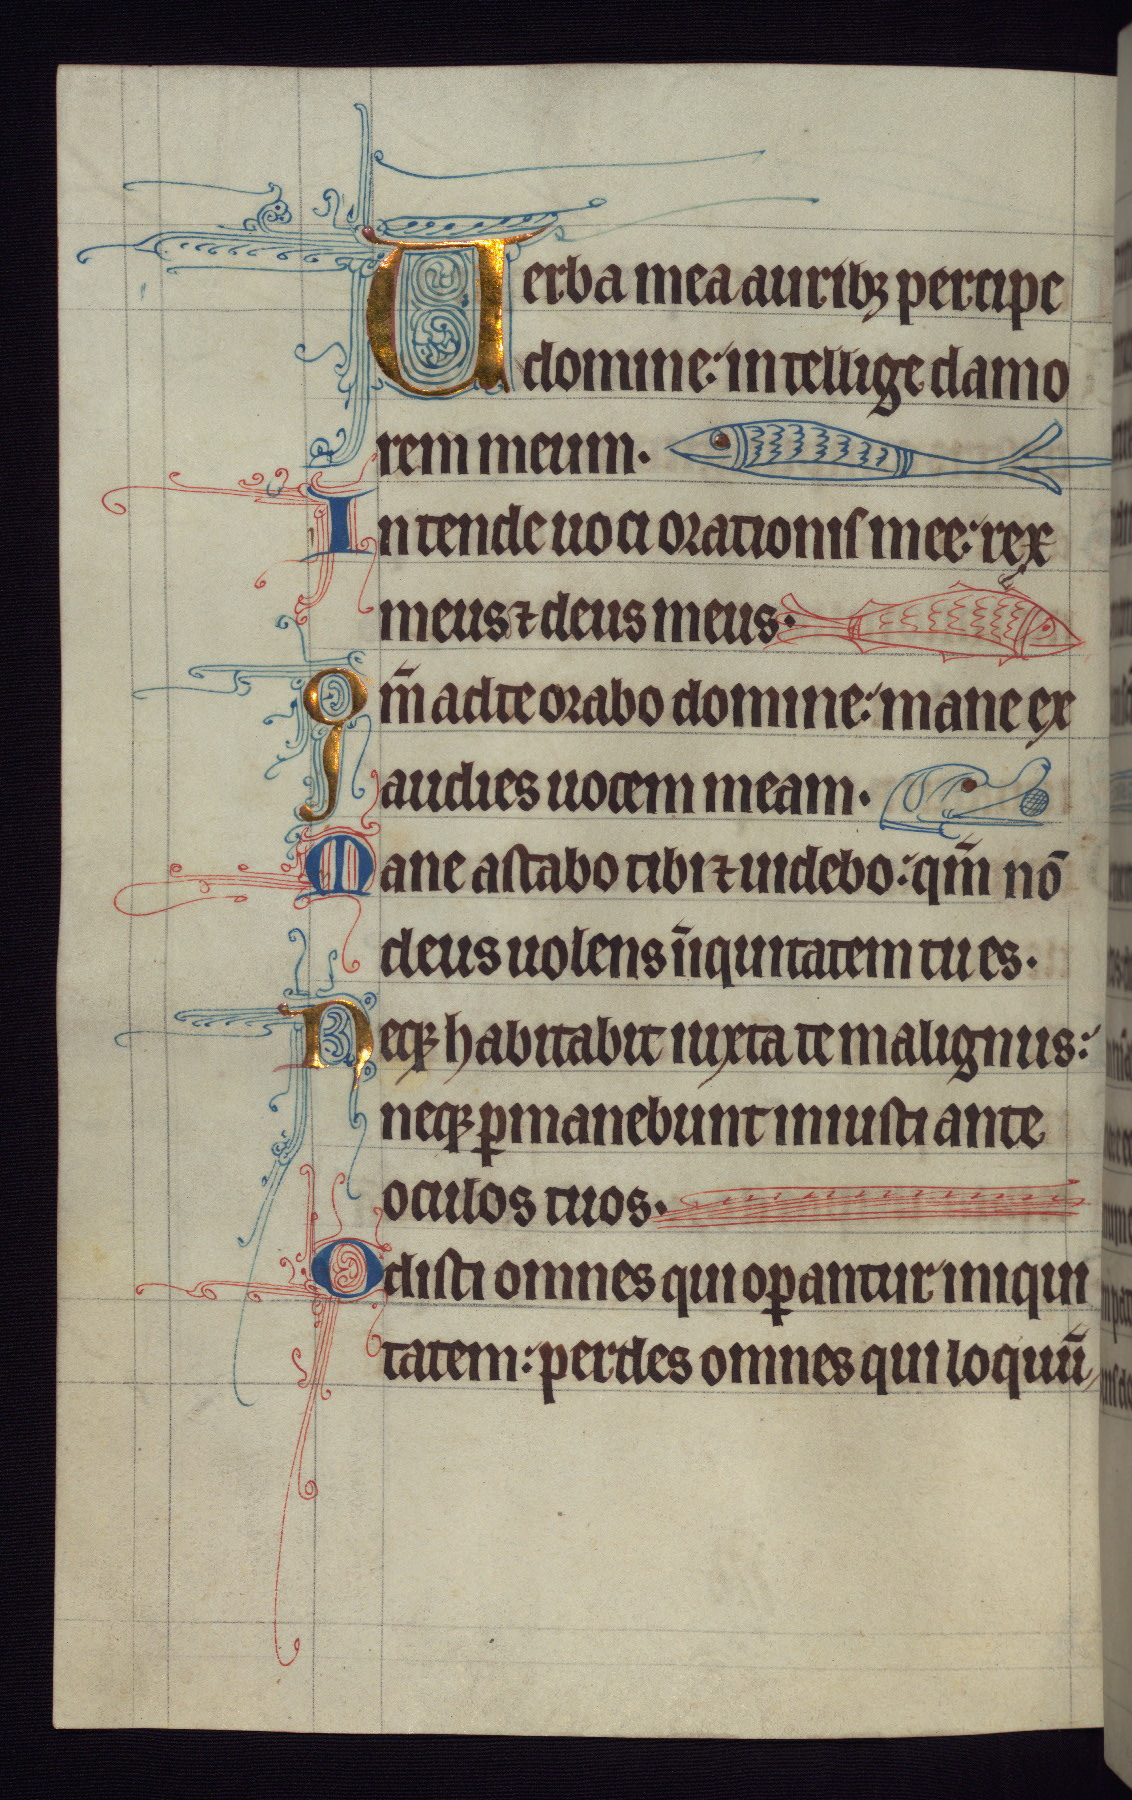 Uerba mea auribꝫ percipe
domine: intellige clamo
rem meum.
Intende uoci orationis mee: rex
meus ⁊ deus meus.
Qm̄ ad te orabo domine: mane ex
audies uocem meam.
Mane astabo tibi ⁊ uidebo: qm̄ nō
deus uolens iniquitatem tu es.
Neqꝫ habitabit iuxta te malignus:
neqꝫ ꝑmanebunt iniusti ante
oculos tuos.
Odisti omnes qui oꝑantur iniqui
tatem: perdes omnes qui loquūt